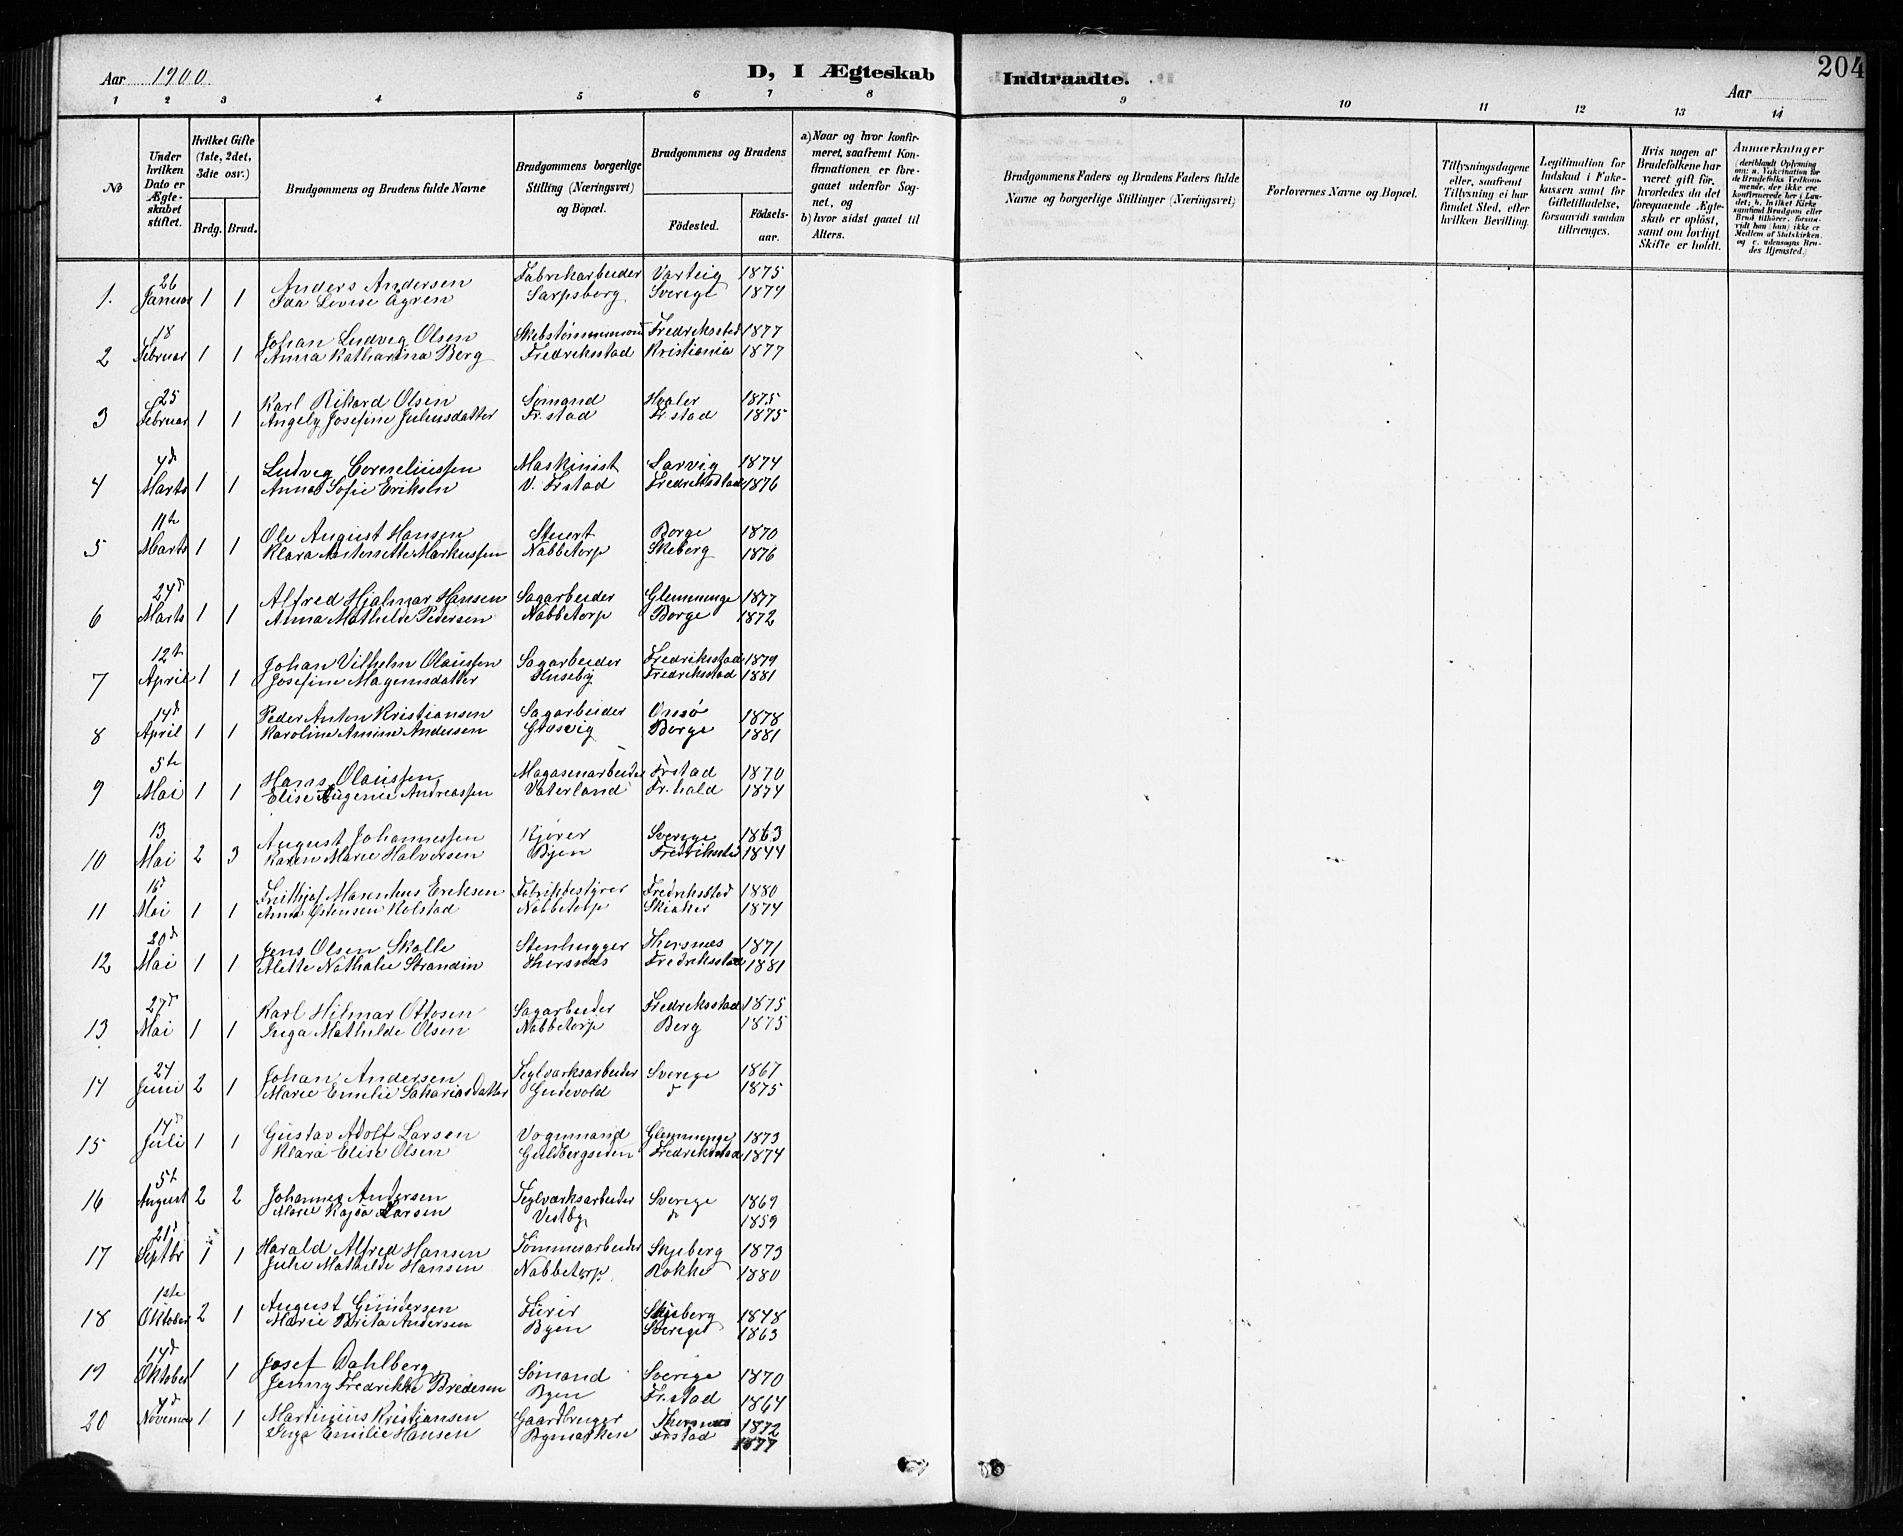 Aar 1900.
D, I Ægteskab
Indtraadte.
204
Aar
1 2 3 4 5 6 7 8 9 10 11 12 13 14
No
Under hvilken Dato er Ægteskabet stiftet.
Hvilket Gifte (1ste, 2det, 3die osv.)
Brdg. Brud.
Brudgommens og Brudens fulde Navne
Brudgommens borgerlige Stilling (Næringsvei) og Bopæl.
Brudgommens og Brudens
Fødested.
Fødselsaar.
a) Naar og hvor konfirmeret, saafremt Konfirmationen er foregaaet udenfor Sognet, og
b) hvor sidst gaaet til Alters.
Brudgommens Faders og Brudens Faders fulde Navne og borgerlige Stillinger (Næringsvei)
Forlovernes Navne og Bopæl.
Tillysningsdagene eller, saafremt Tillysning ei har fundet Sted, efter hvilken Bevilling.
Legitimation for Indskud i Enkekassen samt for Giftetilladelse, forsaavidt saadan tiltrænges.
Hvis nogen af Brudefolkene har været gift før, hvorledes da det foregaaende Ægteskab er opløst, samt om lovligt Skifte er holdt.
Anmærkninger (deriblandt Oplysning om: a. Vakcination for de Brudefolks Vedkommende, der ikke ere konfirmerede her i Landet; b. hvilket Kirkesamfund Brudgom eller Brud tilhører, forsaavidt han (hun) ikke er Medlem af Statskirken, og c. udensogns Brudes Hjemsted.)
26 Anders Andersen Fabrikarbeider Varteig 1875
1. Januar 1 1 Ida Lovise Ågren Sarpsborg Sverige 1874
18 Johan Ludvig Olsen Skibstømmermand Fredriksstad 1877
2 Februar 1 1 Anna Katharina Berg Fredriksstad Kristiania 1877
25 Karl Rikard Olsen Sømand Hvaler 1875
3 Februar 1 1 Angely Josefine Juliusdatter Fr.stad Fr.stad 1875
4d Ludvig Corneliussen Maskinist Larvig 1874
4 Marts 1 1 Anna Sofie Eriksen V. Frstad Fredriksstad 1876
11te Ole August Hansen Stuert Borge 1870
5 Marts 1 1 Klara Antonette Markussen Nabbetorp Skeberg 1876
24d Alfred Hjalmar Hansen Sagarbeider Glemminge 1877
6 Marts 1 1 Anna Mathilde Pedersen Nabbetorp Borge 1872
12t Johan Vilhelm Olaussen Sagarbeider Fredriksstad 1879
7 April 1 1 Josefine Magnusdatter Huseby Fredriksstad 1881
14d Peder Anton Kristiansen Sagarbeider Onsø 1878
8 April 1 1 Karoline Amine Andersen Græsvig Borge 1881
5te Hans Olaussen Magasenarbeider Frstad 1870
9 Mai 1 1 Elise Eugenie Andreassen Vaterland Fr.hald 1874
13 August Johannessen Kjører Sverige 1863
10 Mai 2 3 Karen Marie Halvorsen Byen Fredriksstad 1844
16d Frithjof Marenhus Eriksen Fabrikbestyrer Fredriksstad 1880
11 Mai 1 1 Anna Østensen Kolstad Nabbetorp Skiaker 1874
20d Jens Olsen Skolle Stenhugger Thorsnæs 1871
12 Mai 1 1 Alette Nathalie Strandin Thorsnæs Fredriksstad 1881
27d Karl Hilmar Ottosen Sagarbeider Fredriksstad 1875
13 Mai 1 1 Inga Mathilde Olsen Nabbetorp Berg 1875
24 Johan Andersen Teglværksarbeider Sverige 1867
14 Juni 2 1 Marie Emilie Sakariasdatter Gudevold d 1875
14d Gustav Adolf Larsen Vognmand Glemminge 1873
15 Juli 1 1 Klara Elise Olsen Guldbergsiden Fredriksstad 1874
5t Johannes Andersen Teglværksarbeider Sverige 1869
16 August 2 2 Marie Kajsa Larsen Vestby d 1859
21d Harald Alfred Hansen Tømmerarbeider Skjeberg 1873
17 Septbr 1 1 Julie Mathilde Hansen Nabbetorp Rokke 1880
1ste August Gundersen Furir Skjeberg 1848
18 Oktober 2 1 Marie Brita Andersen Byen Sverige 1863
14d Josef Dahlberg Sømand Sverige 1870
19 Oktober 1 1 Jenny Fredrikke Bredesen Byen Fr.stad 1864
4d Martinius Kristiansen Gaardbruger Thorsnæs 1872
20 Novemer 1 1 Inga Emilie Hansen Bymarken Frstad 1877